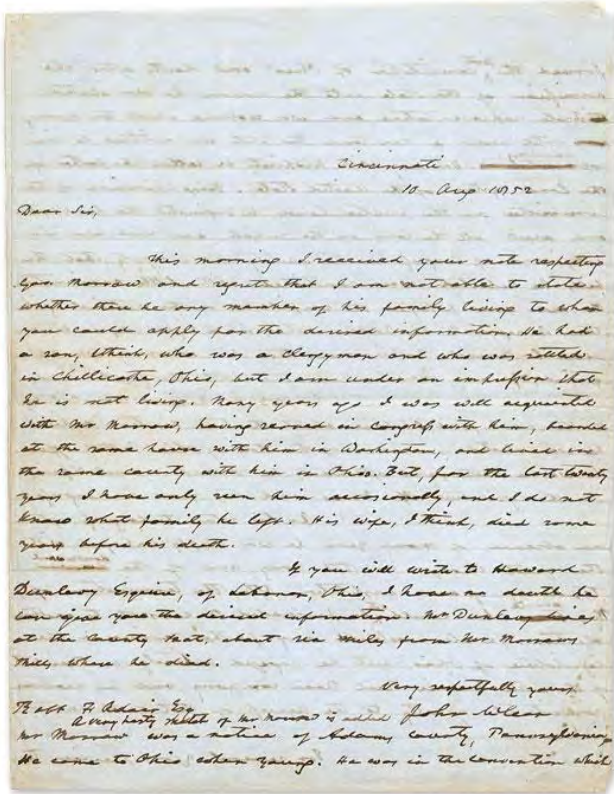 Cincinnati
10 Aug 1852
Dear Sir,
This morning I received your note respecting
Gov Morrow and regret that I am not able to state
whether there be any member of his family living to whom
you could apply for the desired information. He had
a son, I think, who was a Clergyman and who was settled
in Chillicothe, Ohio, but I am under an impression that
he is not living. Many years ago I was well acquainted
with Mr Morrow, having served in congress with him, boarded
at the same house with him in Washington, and lived in
the same county with him in Ohio. But, for the last twenty
years I have only seen him occasionally, and I do not
know what family he left. His wife, I think, died some
years before his death.
If you will write to Howard
Dunlavy Esquire, of Lebanon, Ohio, I have no doubt he
can give you the desired information. Mr Dunlavy lives
at the County seat, about six miles from Mr Morrows
Mills where he died.
Very respectfully yours,
F Adair Esq
A very hasty sketch of Mr Morrow is added John
Mr Morrow was a native of Adams County, Pennsylvania
He came to Ohio when young. He was in the Convention which